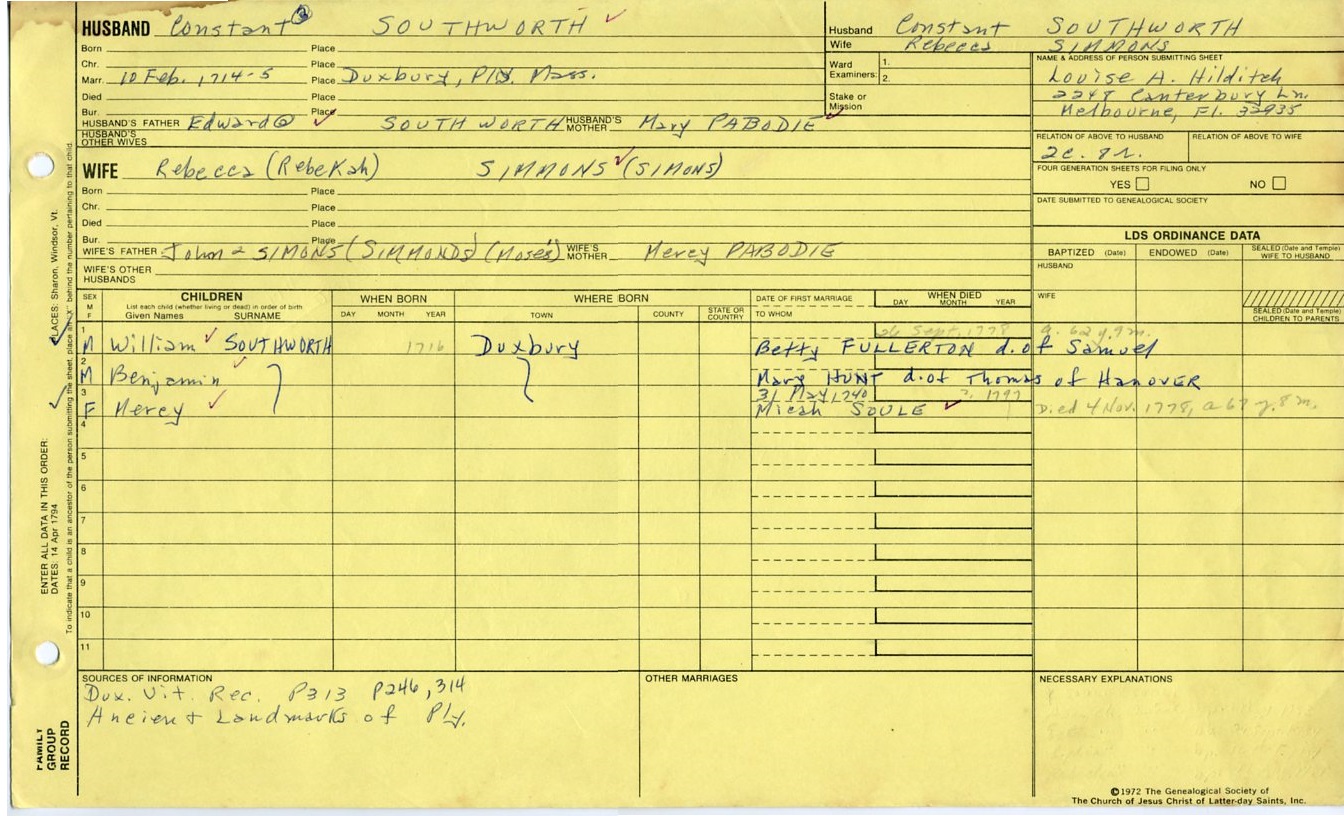 HUSBAND Constant ③ SOUTHWORTH ✓
Born Place
Chr. Place
Marr. 10 Feb. 1714-5 Place Duxbury, Ply, Mass.
Died Place
Bur. Place
HUSBAND'S FATHER Edward ② ✓ SOUTHWORTH HUSBAND'S MOTHER Mary PABODIE ✓
HUSBAND'S OTHER WIVES
Husband Constant SOUTHWORTH
Wife Rebecca SIMMONS
Ward Examiners: 1.
2.
Stake or Mission
NAME & ADDRESS OF PERSON SUBMITTING SHEET
Louise A. Hilditch
2249 Canterbury Ln.
Melbourne, Fl. 32935
RELATION OF ABOVE TO HUSBAND RELATION OF ABOVE TO WIFE
FOUR GENERATION SHEETS FOR FILING ONLY
YES NO
DATE SUBMITTED TO GENEALOGICAL SOCIETY
WIFE Rebecca (Rebekah) SIMMONS ✓ (SIMONS)
Born Place
Chr. Place
Died Place
Bur. Place
WIFE'S FATHER John 2 SIMONS (SIMMONDS) (Moses) WIFE'S MOTHER Mercy PABODIE
WIFE'S OTHER HUSBANDS
LDS ORDINANCE DATA
BAPTIZED (Date) ENDOWED (Date) SEALED (Date and Temple) WIFE TO HUSBAND
HUSBAND
WIFE
SEALED (Date and Temple) CHILDREN TO PARENTS
SEX M F CHILDREN WHEN BORN WHERE BORN DATE OF FIRST MARRIAGE WHEN DIED
List each child (whether living or dead) in order of birth
Given Names SURNAME DAY MONTH YEAR TOWN COUNTY STATE OR COUNTRY TO WHOM DAY MONTH YEAR
26 Sept. 1778 a. 62 y. 9 m.
1 M William ✓ SOUTHWORTH 1716 Duxbury Betty FULLERTON d. of Samuel
2 M Benjamin ✓ Mary HUNT d. of Thomas of HANOVER
31 May 1740 1797
3 F Mercy ✓ Micah SOULE ✓ Died 4 Nov. 1778, a 67 y. 8 m.
4
5
6
7
8
9
10
11
SOURCES OF INFORMATION
Dux. Vit. Rec. P313 P246, 314
Ancient Landmarks of Ply.
OTHER MARRIAGES
NECESSARY EXPLANATIONS
©1972 The Genealogical Society of
The Church of Jesus Christ of Latter-day Saints, Inc.
FAMILY GROUP RECORD
ENTER ALL DATA IN THIS ORDER:
DATES: 14 Apr 1794
PLACES: Sharon, Windsor, Vt.
To indicate that a child is an ancestor of the person submitting the sheet, place an "X" behind the number pertaining to that child.